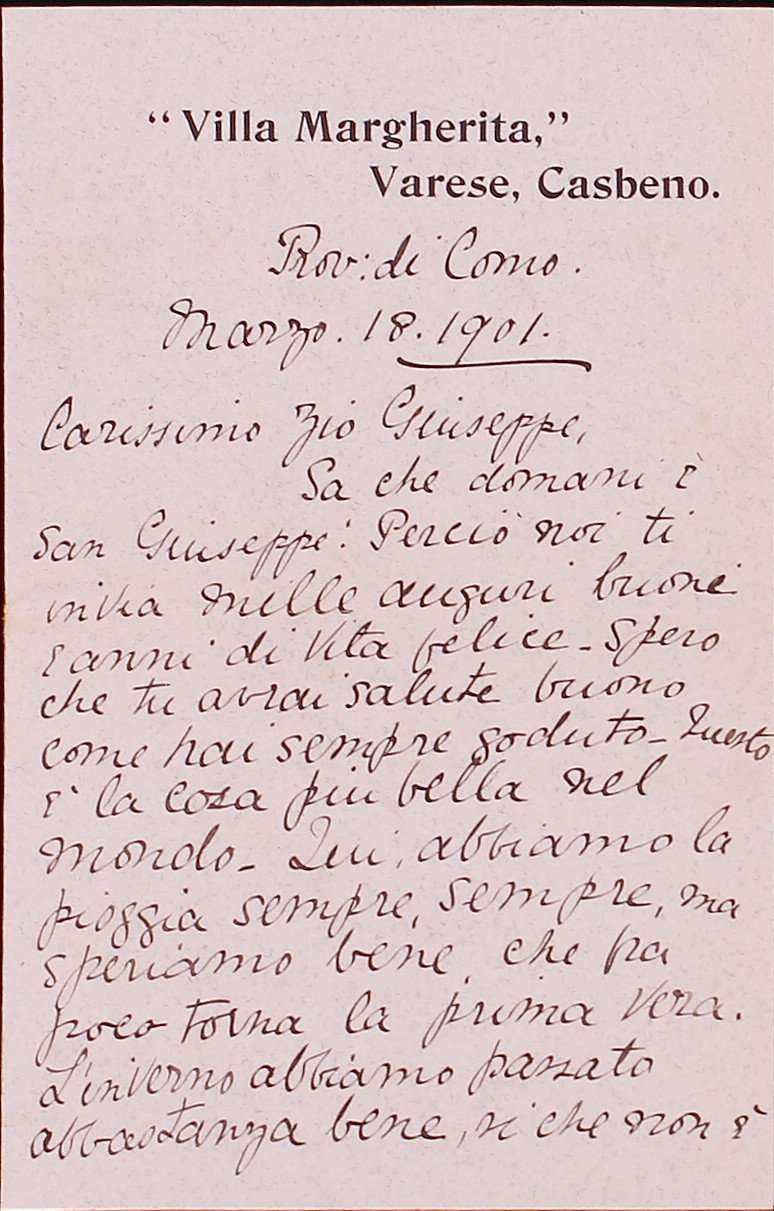 “Villa Margherita,”
Varese, Casbeno.
Prov: di Como.
Marzo. 18. 1901.
Carissimo Zio Giuseppe,
Sa che domani è
San Giuseppe! Perciò noi ti
invia mille auguri buoni
e anni di vita felice - Spero
che tu avrai salute buono
come hai sempre goduto - Questo
è la cosa piu bella nel
mondo - Qui, abbiamo la
pioggia sempre, sempre, ma
speriamo bene, che fra
poco torna la prima vera.
L'inverno abbiamo passato
abbastanza bene, si che non è